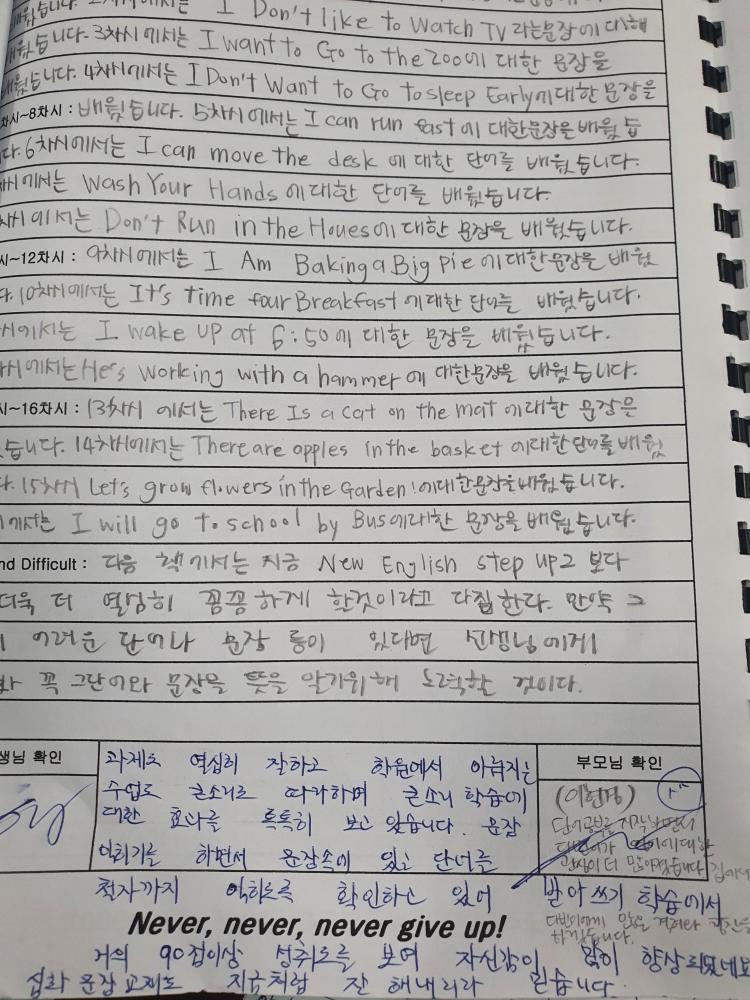 배웠습니다. 2차시에서는 I Don't like to Watch TV 라는문장에 대해
배웠습니다. 3차시에서는 I want to Go to the zoo에 대한 문장을
배웠습니다. 4차시에서는 I Don't Want to Go to sleep Early에대한 문장을
차시~8차시 : 배웠습니다. 5차시에서는 I can run fast에 대한문장을배웠습
다. 6차시에서는 I can move the desk 에 대한 단어를 배웠습니다.
차시에서는 Wash Your Hands 에대한 단어를 배웠습니다.
차시에서는 Don't Run in the Houes에대한 문장을 배웠습니다.
시~12차시 : 9차시에서는 I Am Baking a Big Pie에대한문장을 배웠
다. 10차시에서는 It's time four Breakfast에대한 단어를 배웠습니다.
시에서는 I wake up at 6:50에 대한 문장을 배웠습니다.
차시에서는 He's Working with a hammer에 대한문장을 배웠습니다.
시~16차시 : 13차시 에서는 There Is a cat on the mat에대한 문장은
습니다. 14차시에서는 There are opples in the basket 에대한단어를배웠
다. 15차시 Let's grow flowers in the Garden!에대한문장을배웠습니다.
에서는 I will go to school by Bus에대한 문장을 배웠습니다.
nd Difficult : 다음 책에서는 지금 New English step up2 보다
더욱 더 열심히 꼼꼼하게 할것이라고 다짐한다. 만약 그
어려운 단어나 문장 등이 있다면 선생님에게
봐 꼭 그단어와 문장을 뜻을 알기위해 노력할 것이다.
생님 확인
과제도 열심히 잘하고 학원에서 이뤄지는
수업도 큰소리로 따라하며 큰소리 학습에
대한 효과를 톡톡히 보고 있습니다. 문장
익히기를 하면서 문장속에 있는 단어들
철자까지 익히도록 확인하고 있어 받아쓰기 학습에서
부모님 확인
단어공부를 시작하면서
관심이 더 많아졌습니다
Never, never, never give up!
거의 90점이상 성취도를 보여 자신감이 많이 향상되었네요
심화 문장교재도 지금처럼 잘 해내리라 믿습니다.